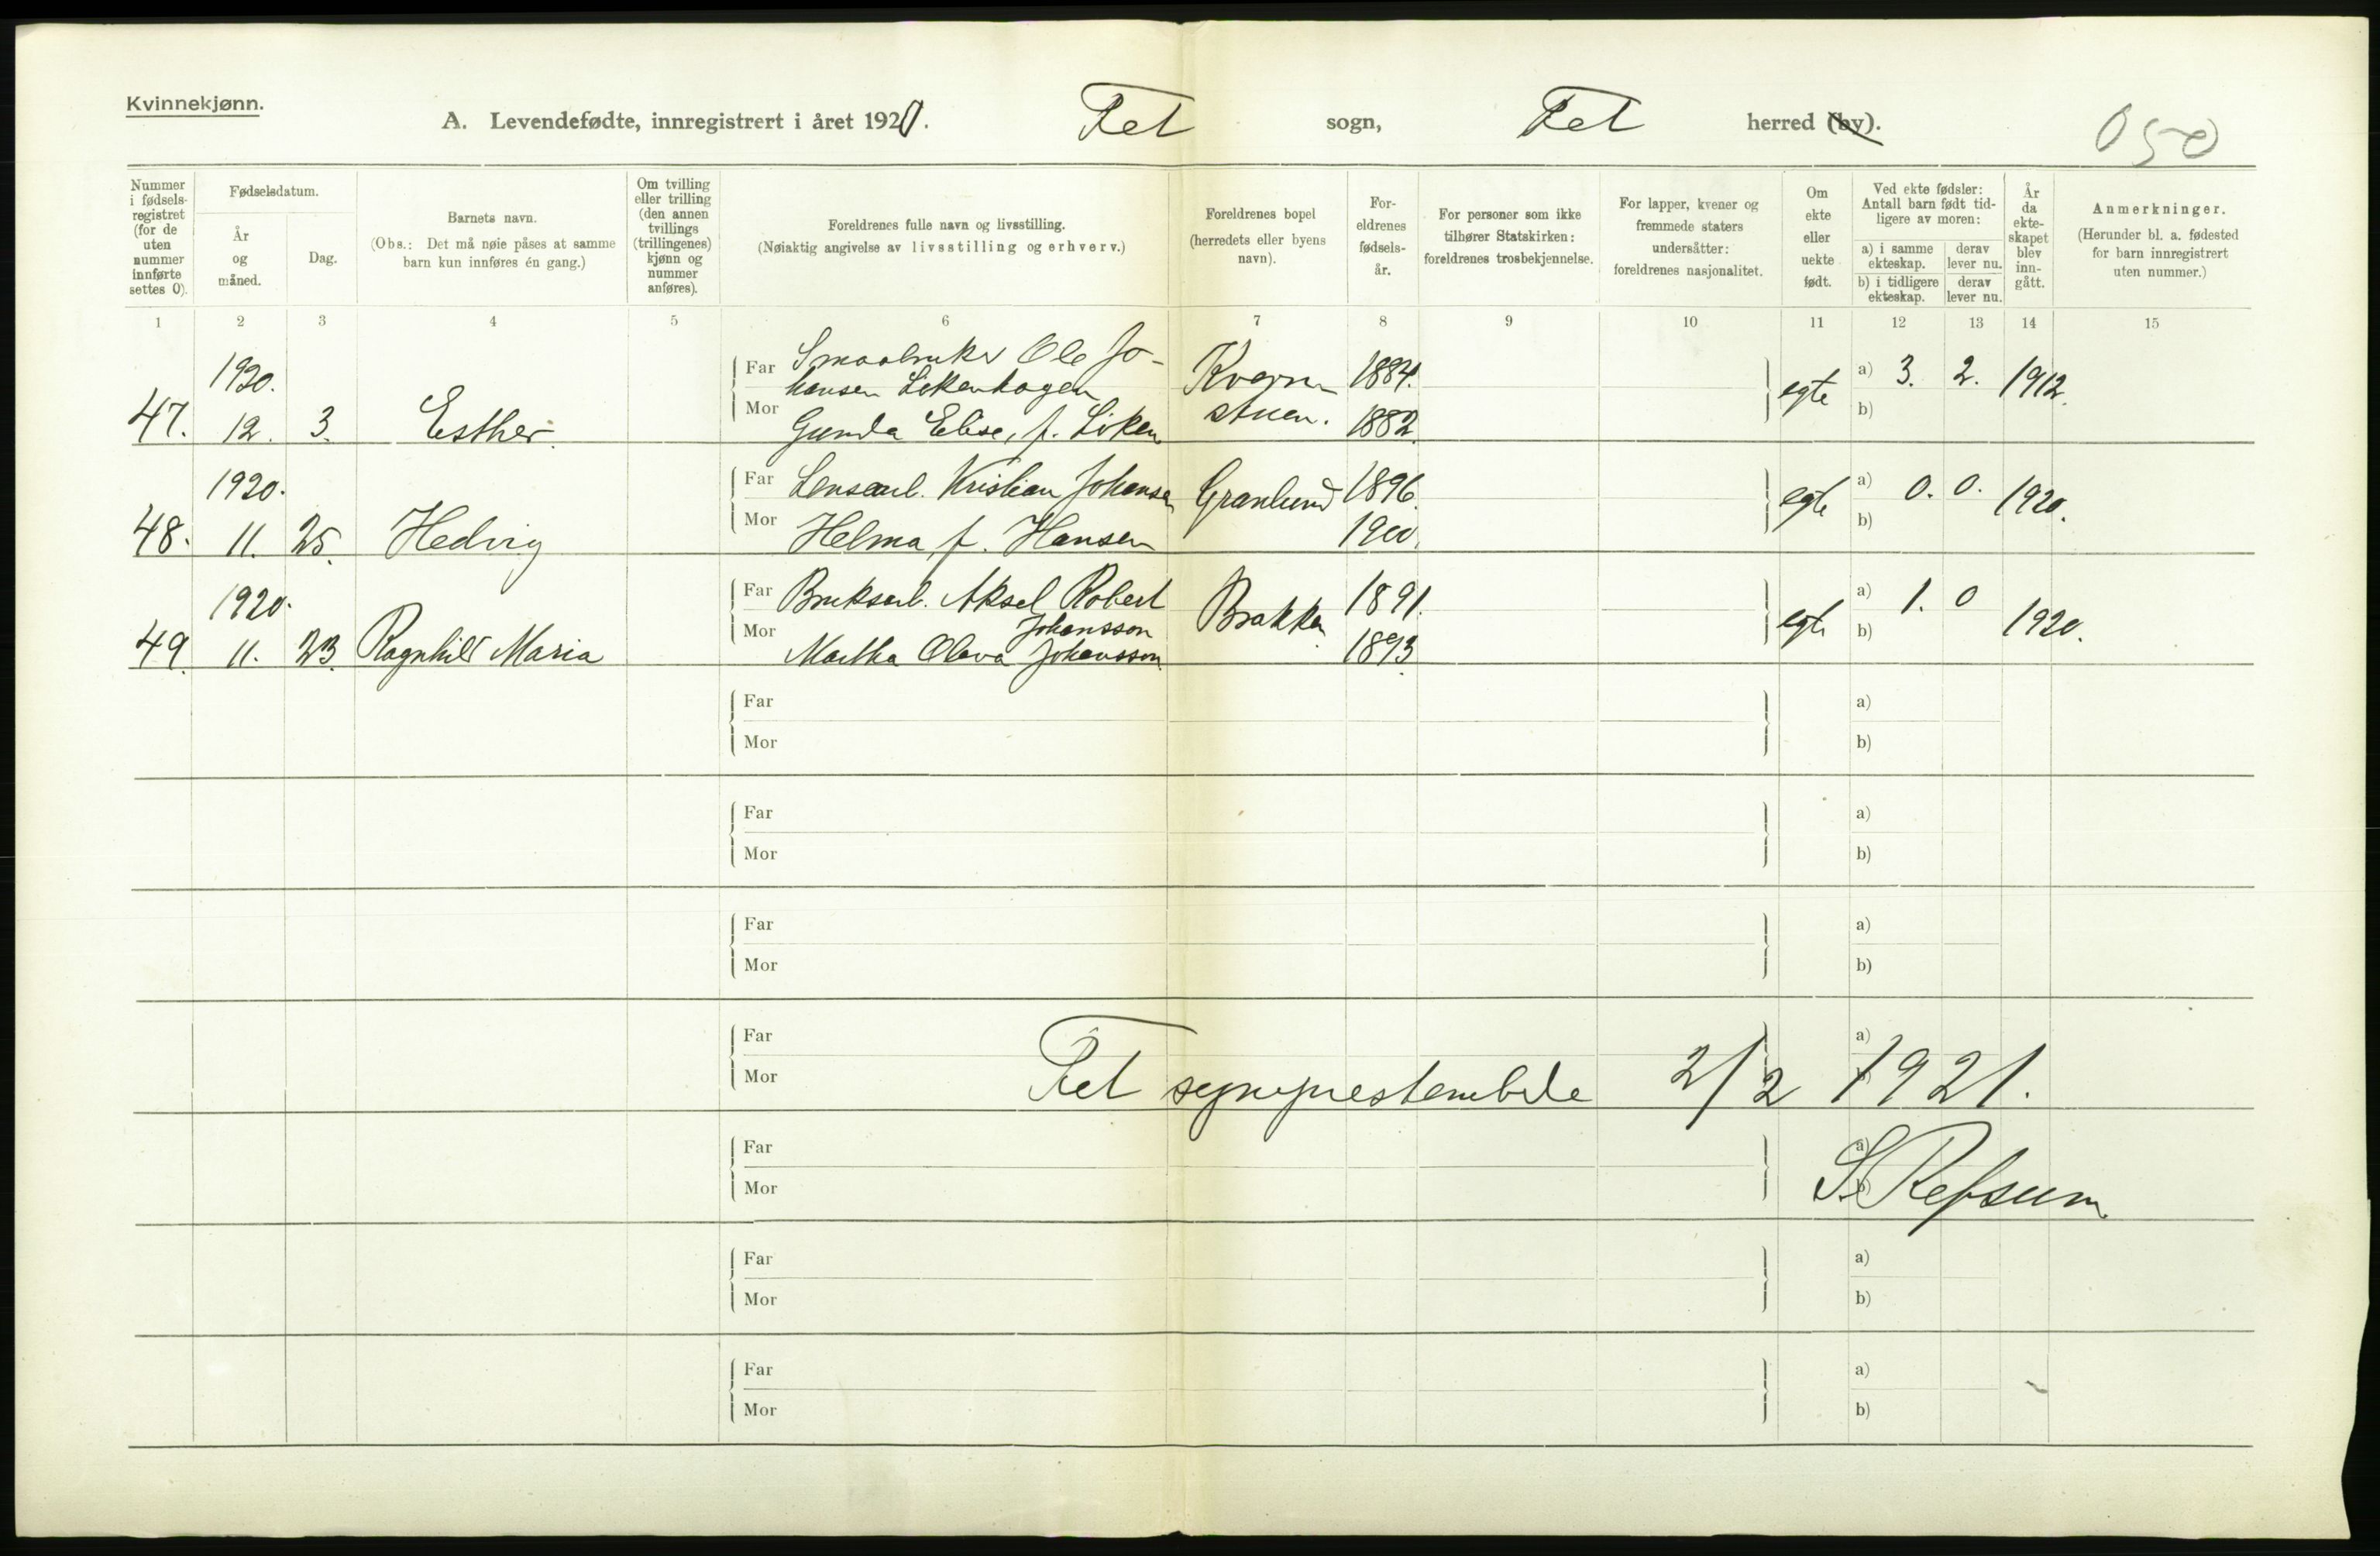 Kvinnekjønn.
A. Levendefødte, innregistrert i året 1920. Fet sogn, Fet herred (by).
050
Nummer i fødsels-registret (for de uten nummer innførte settes 0).
Fødselsdatum.
År og måned.
Dag.
Barnets navn.
(Obs.: Det må nøie påses at samme barn kun innføres én gang.)
Om tvilling eller trilling (den annen tvillings (trillingenes) kjønn og nummer anføres).
Foreldrenes fulle navn og livsstilling.
(Nøiaktig angivelse av livsstilling og erhverv.)
Foreldrenes bopel (herredets eller byens navn).
For-eldrenes fødsels-år.
For personer som ikke tilhører Statskirken: foreldrenes trosbekjennelse.
For lapper, kvener og fremmede staters undersåtter: foreldrenes nasjonalitet.
Om ekte eller uekte født.
Ved ekte fødsler: Antall barn født tid-ligere av moren:
a) i samme ekteskap. derav lever nu.
b) i tidligere ekteskap. derav lever nu.
År da ekte-skapet blev inn-gått.
Anmerkninger.
(Herunder bl. a. fødested for barn innregistrert uten nummer.)
1 2 3 4 5 6 7 8 9 10 11 12 13 14 15
1920.
Far Smaabruker Ole Jo-
hansen Likenhagen
Kværn 1884.
a) 3. 2. 1912.
egte
47. 12. 3. Esther.
Mor Gunda Elise, f. Liken
stuen. 1882.
b)
1920.
Far Lensearb. Kristian Johansen Granlund 1896.
egte a) 0. 0. 1920.
48. 11. 25. Hedvig
Mor Helma f. Hansen 1900.
b)
1920.
Far Bruksarb. Aksel Robert
Johansson
Brakken 1891.
egte a) 1. 0 1920.
49. 11. 23. Ragnhild Maria
Mor Martha Olava Johansson 1893.
b)
Far a)
Mor b)
Far a)
Mor b)
Far a)
Mor b)
Far a)
Mor
Fet sogneprestembede 2/2 1921.
Far a)
Mor
S. Refsum
Far a)
Mor b)
Far a)
Mor b)